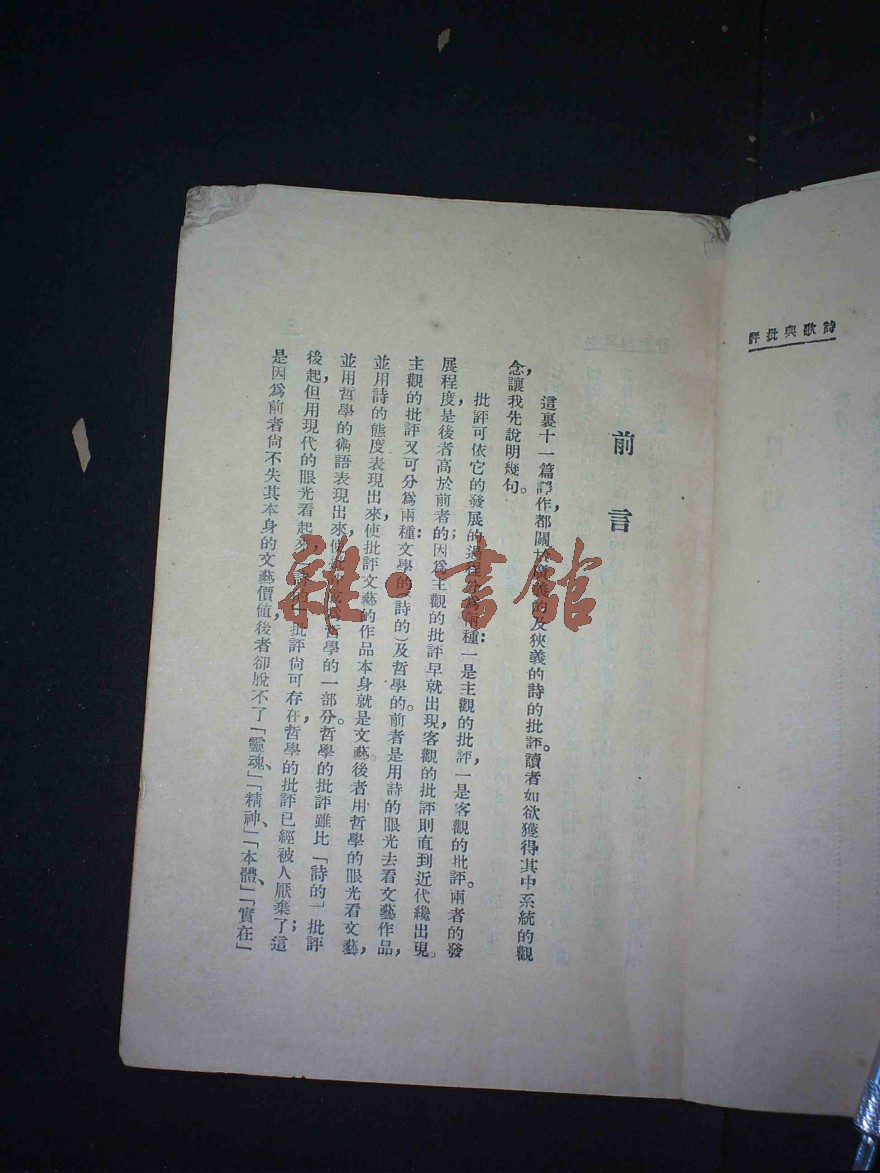 詩歌與批評
前言
這裏十一篇譯作，都關於廣義的及狹義的詩的批評。讀者如欲獲得其中系統的觀
念，讓我先說明幾句。
批評可依它的發展的過程分爲兩種：一是主觀的批評，一是客觀的批評。兩者的發
展程度是後者高於前者的；因爲主觀的批評早就出現，客觀的批評則直到近代纔出現。
主觀的批評又可分爲兩種：文學的（詩的）及哲學的。前者是用詩的眼光去看文藝作品，
並用詩的態度表現出來，使批評文藝的作品本身就是文藝。後者用哲學的眼光看文藝，
並用哲學的術語表現出來，使批評成爲哲學的一部分。哲學的批評雖比「詩的」批評
後起，但用現代的眼光看起來，「詩的」批評尙可存在，哲學的批評已經被人厭棄了；這
是因爲前者尙不失其本身的文藝價值，後者卻脫不了「靈魂」、「精神」、「本體」、「實在」
雜·書館